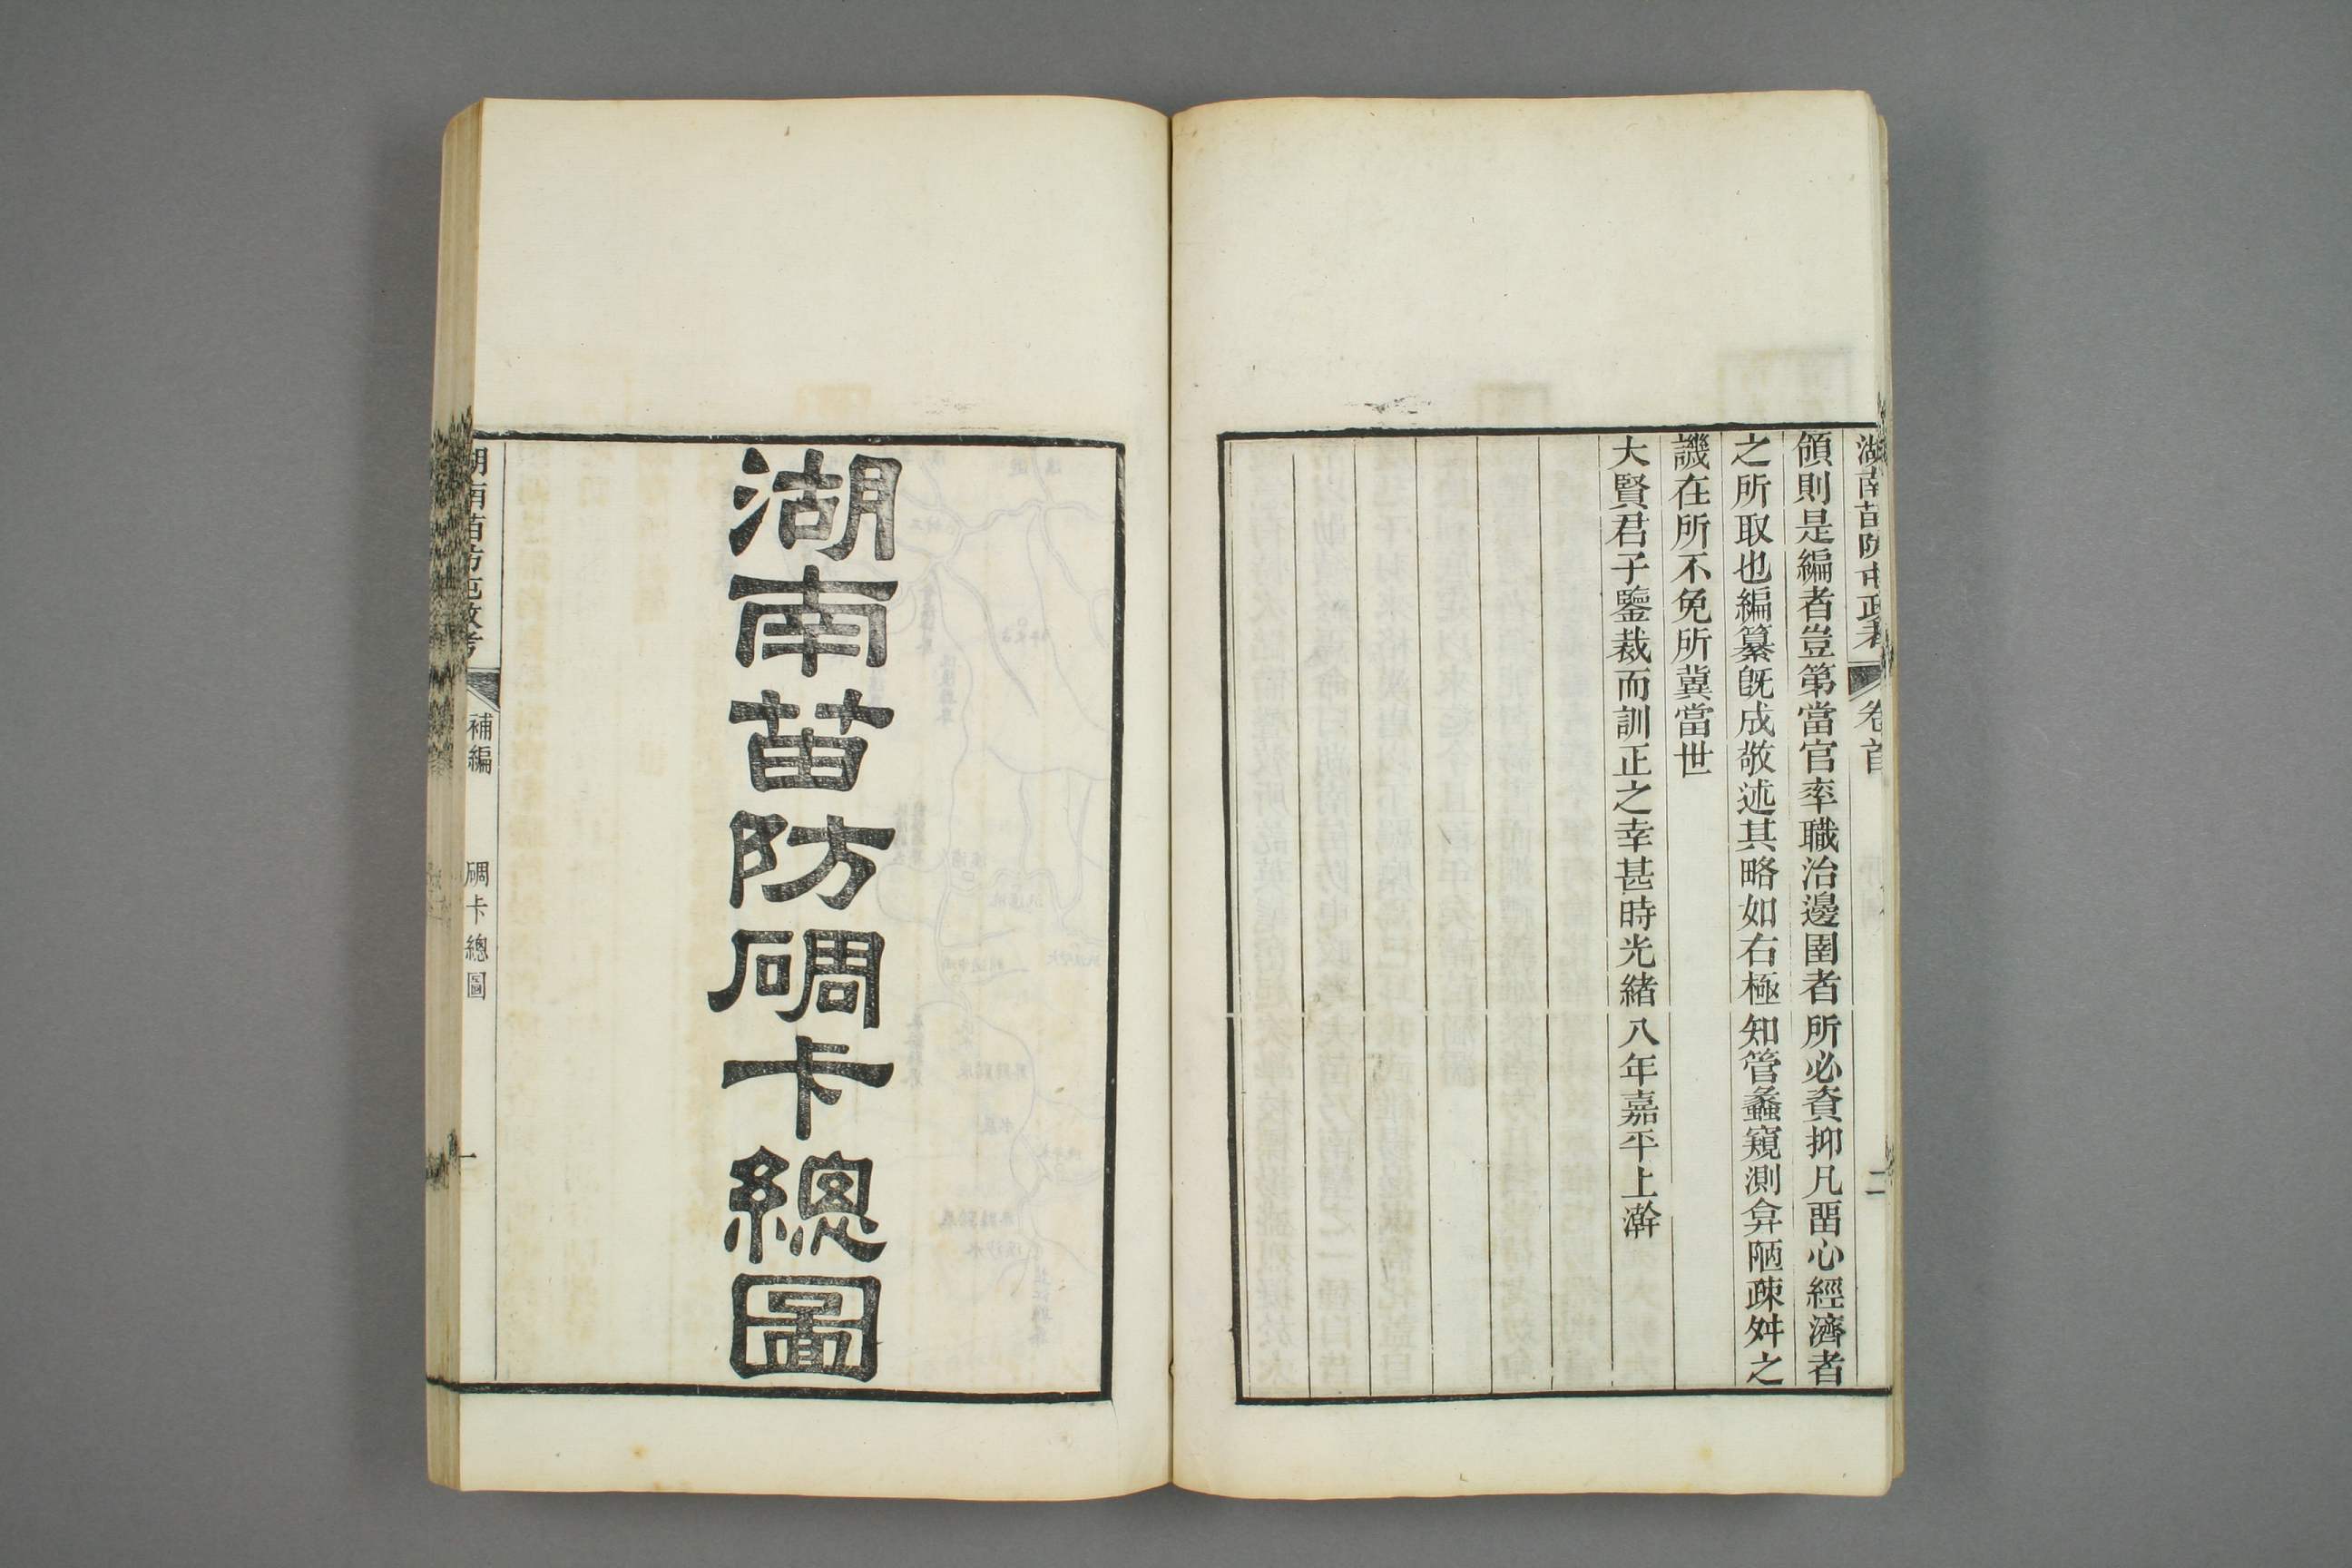 湖南苗防屯政考 卷首 二
領則是編者豈第當官率職治邊圉者所必資抑凡畱心經濟者
之所取也編纂旣成敬述其略如右極知管蠡窺測弇陋疎舛之
譏在所不免所冀當世
大賢君子鑒裁而訓正之幸甚時光緒八年嘉平上澣
湖南苗防碉卡總圖
湖南苗防屯政考 補編 碉卡總圖 一